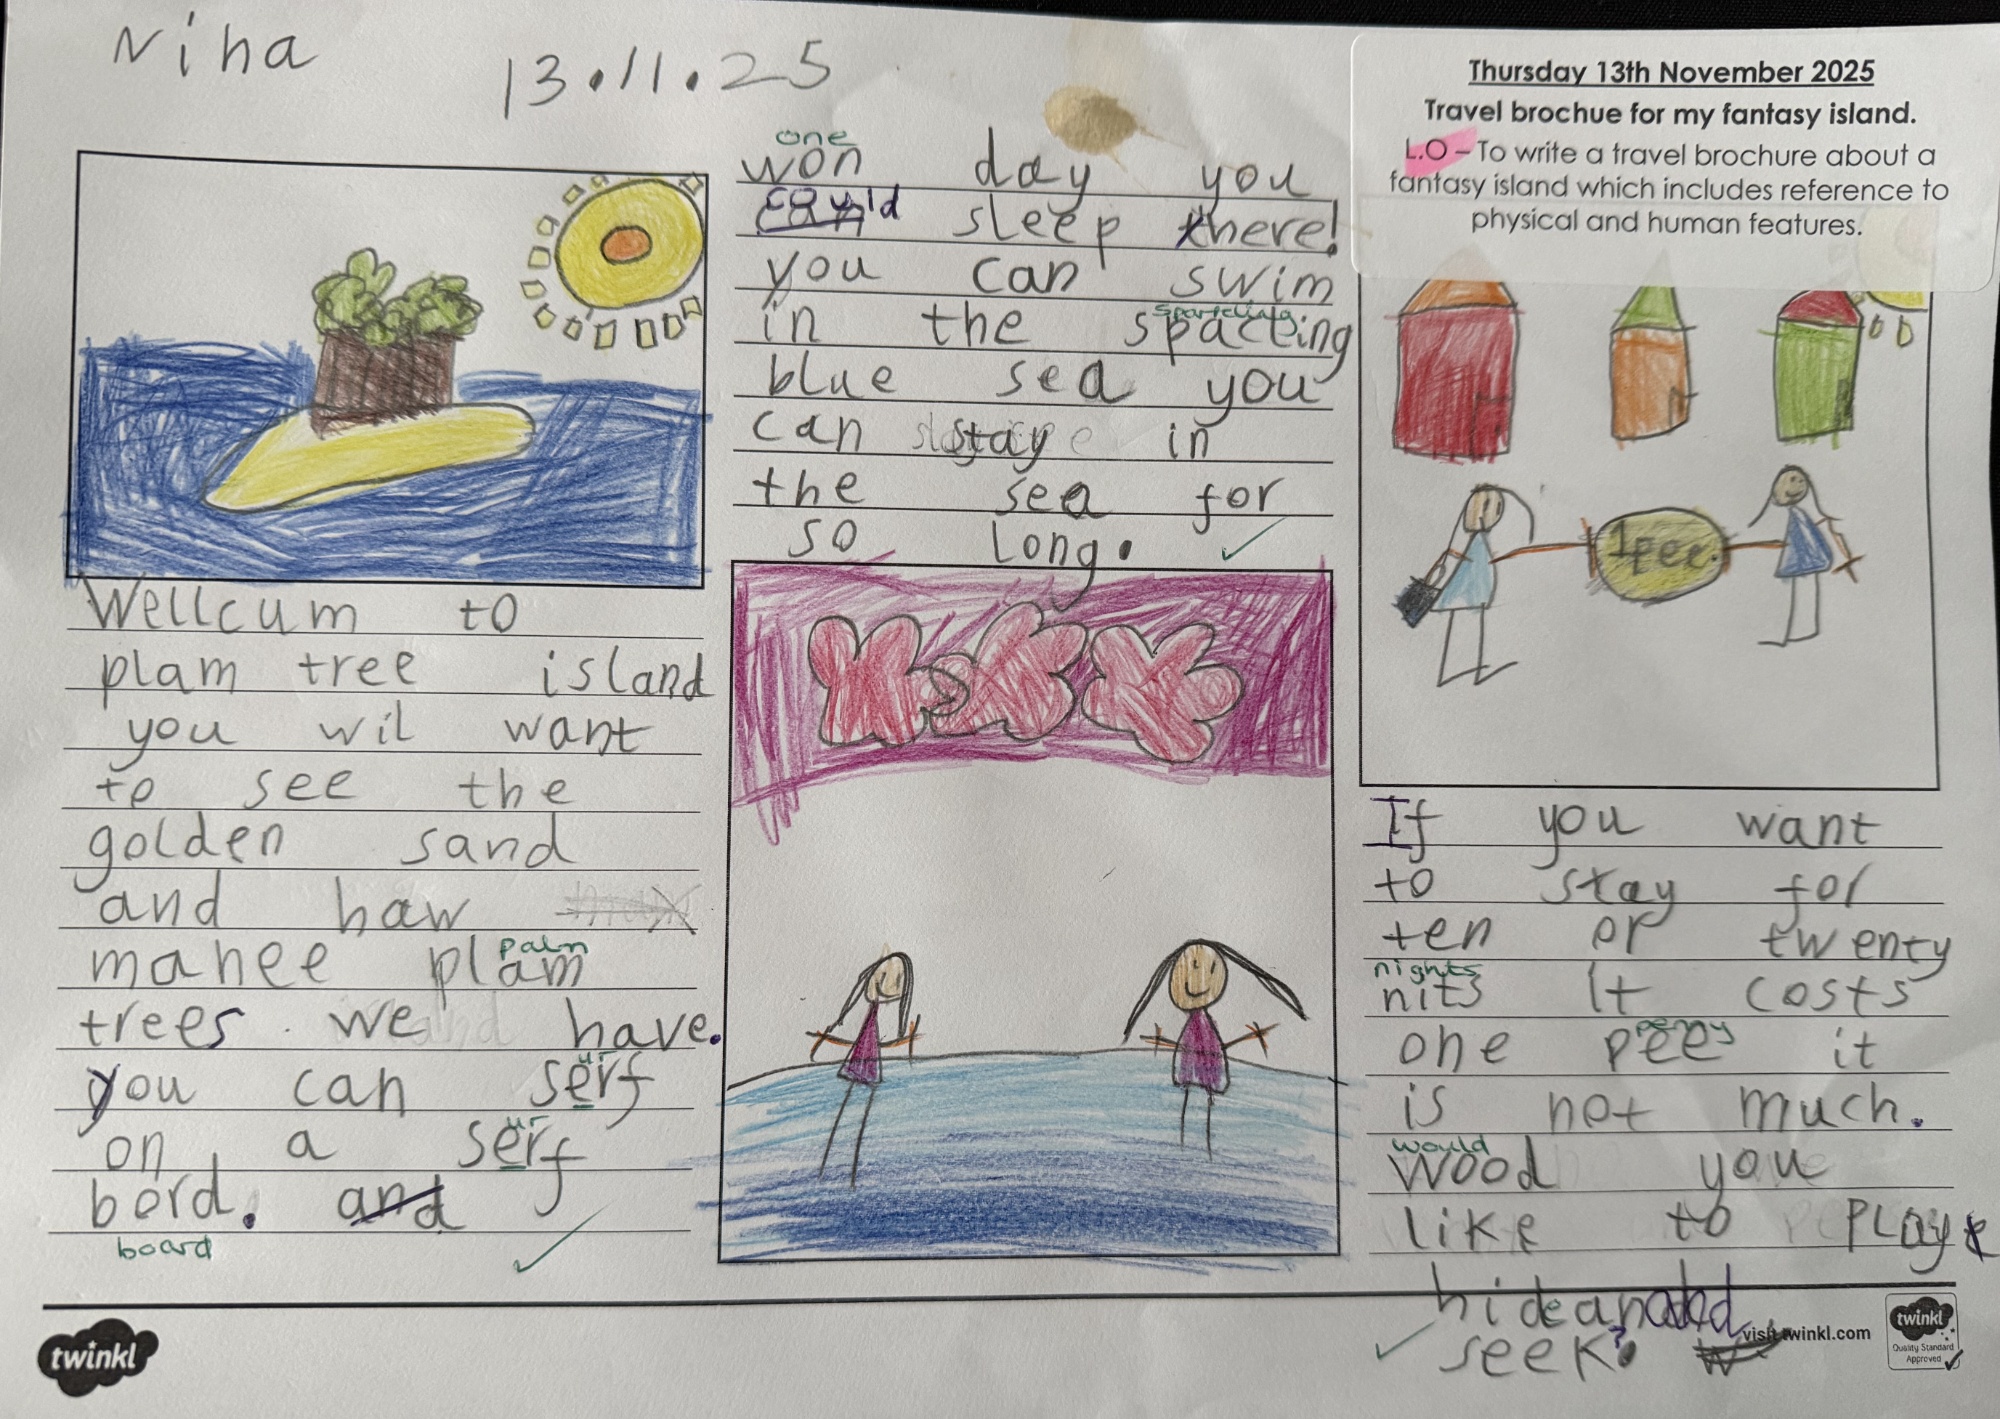 Niha
13.11.25
Thursday 13th November 2025
Travel brochue for my fantasy island.
L.O – To write a travel brochure about a
fantasy island which includes reference to
physical and human features.
Wellcum to
plam tree island
you wil want
to see the
golden sand
and haw
palm
mahee plam
trees we have.
ur
you can serf
ur
on a serf
bord. and
board
one
won day you
could
can sleep there!
you can swim
sparcling
in the spacting
blue sea you
can stay in
the sea for
so long.
1pee.
If you want
to stay for
ten or twenty
nights
nits it costs
penny
one pee it
is not much.
would
wood you
like to play
hide and
seek?
twinkl
visit twinkl.com
twinkl
Quality Standard
Approved